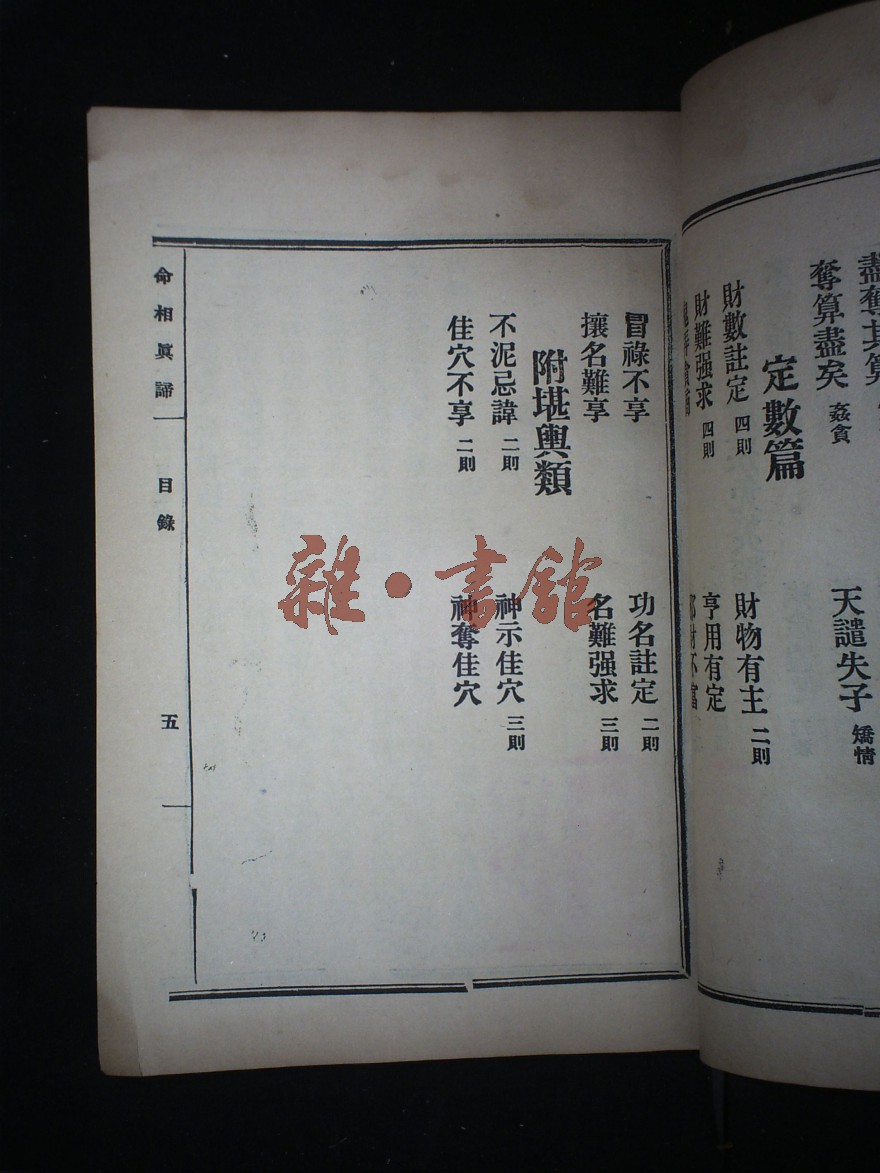 天譴失子 矯情
奪算盡矣 姦貪
定數篇
財數註定 四則
財物有主 二則
財難强求 四則
享用有定
冒祿不享
功名註定 二則
攘名難享
名難强求 三則
附堪輿類
不泥忌諱 二則
神示佳穴 三則
佳穴不享 二則
神奪佳穴
命相眞諦
目錄
五
雜·書館